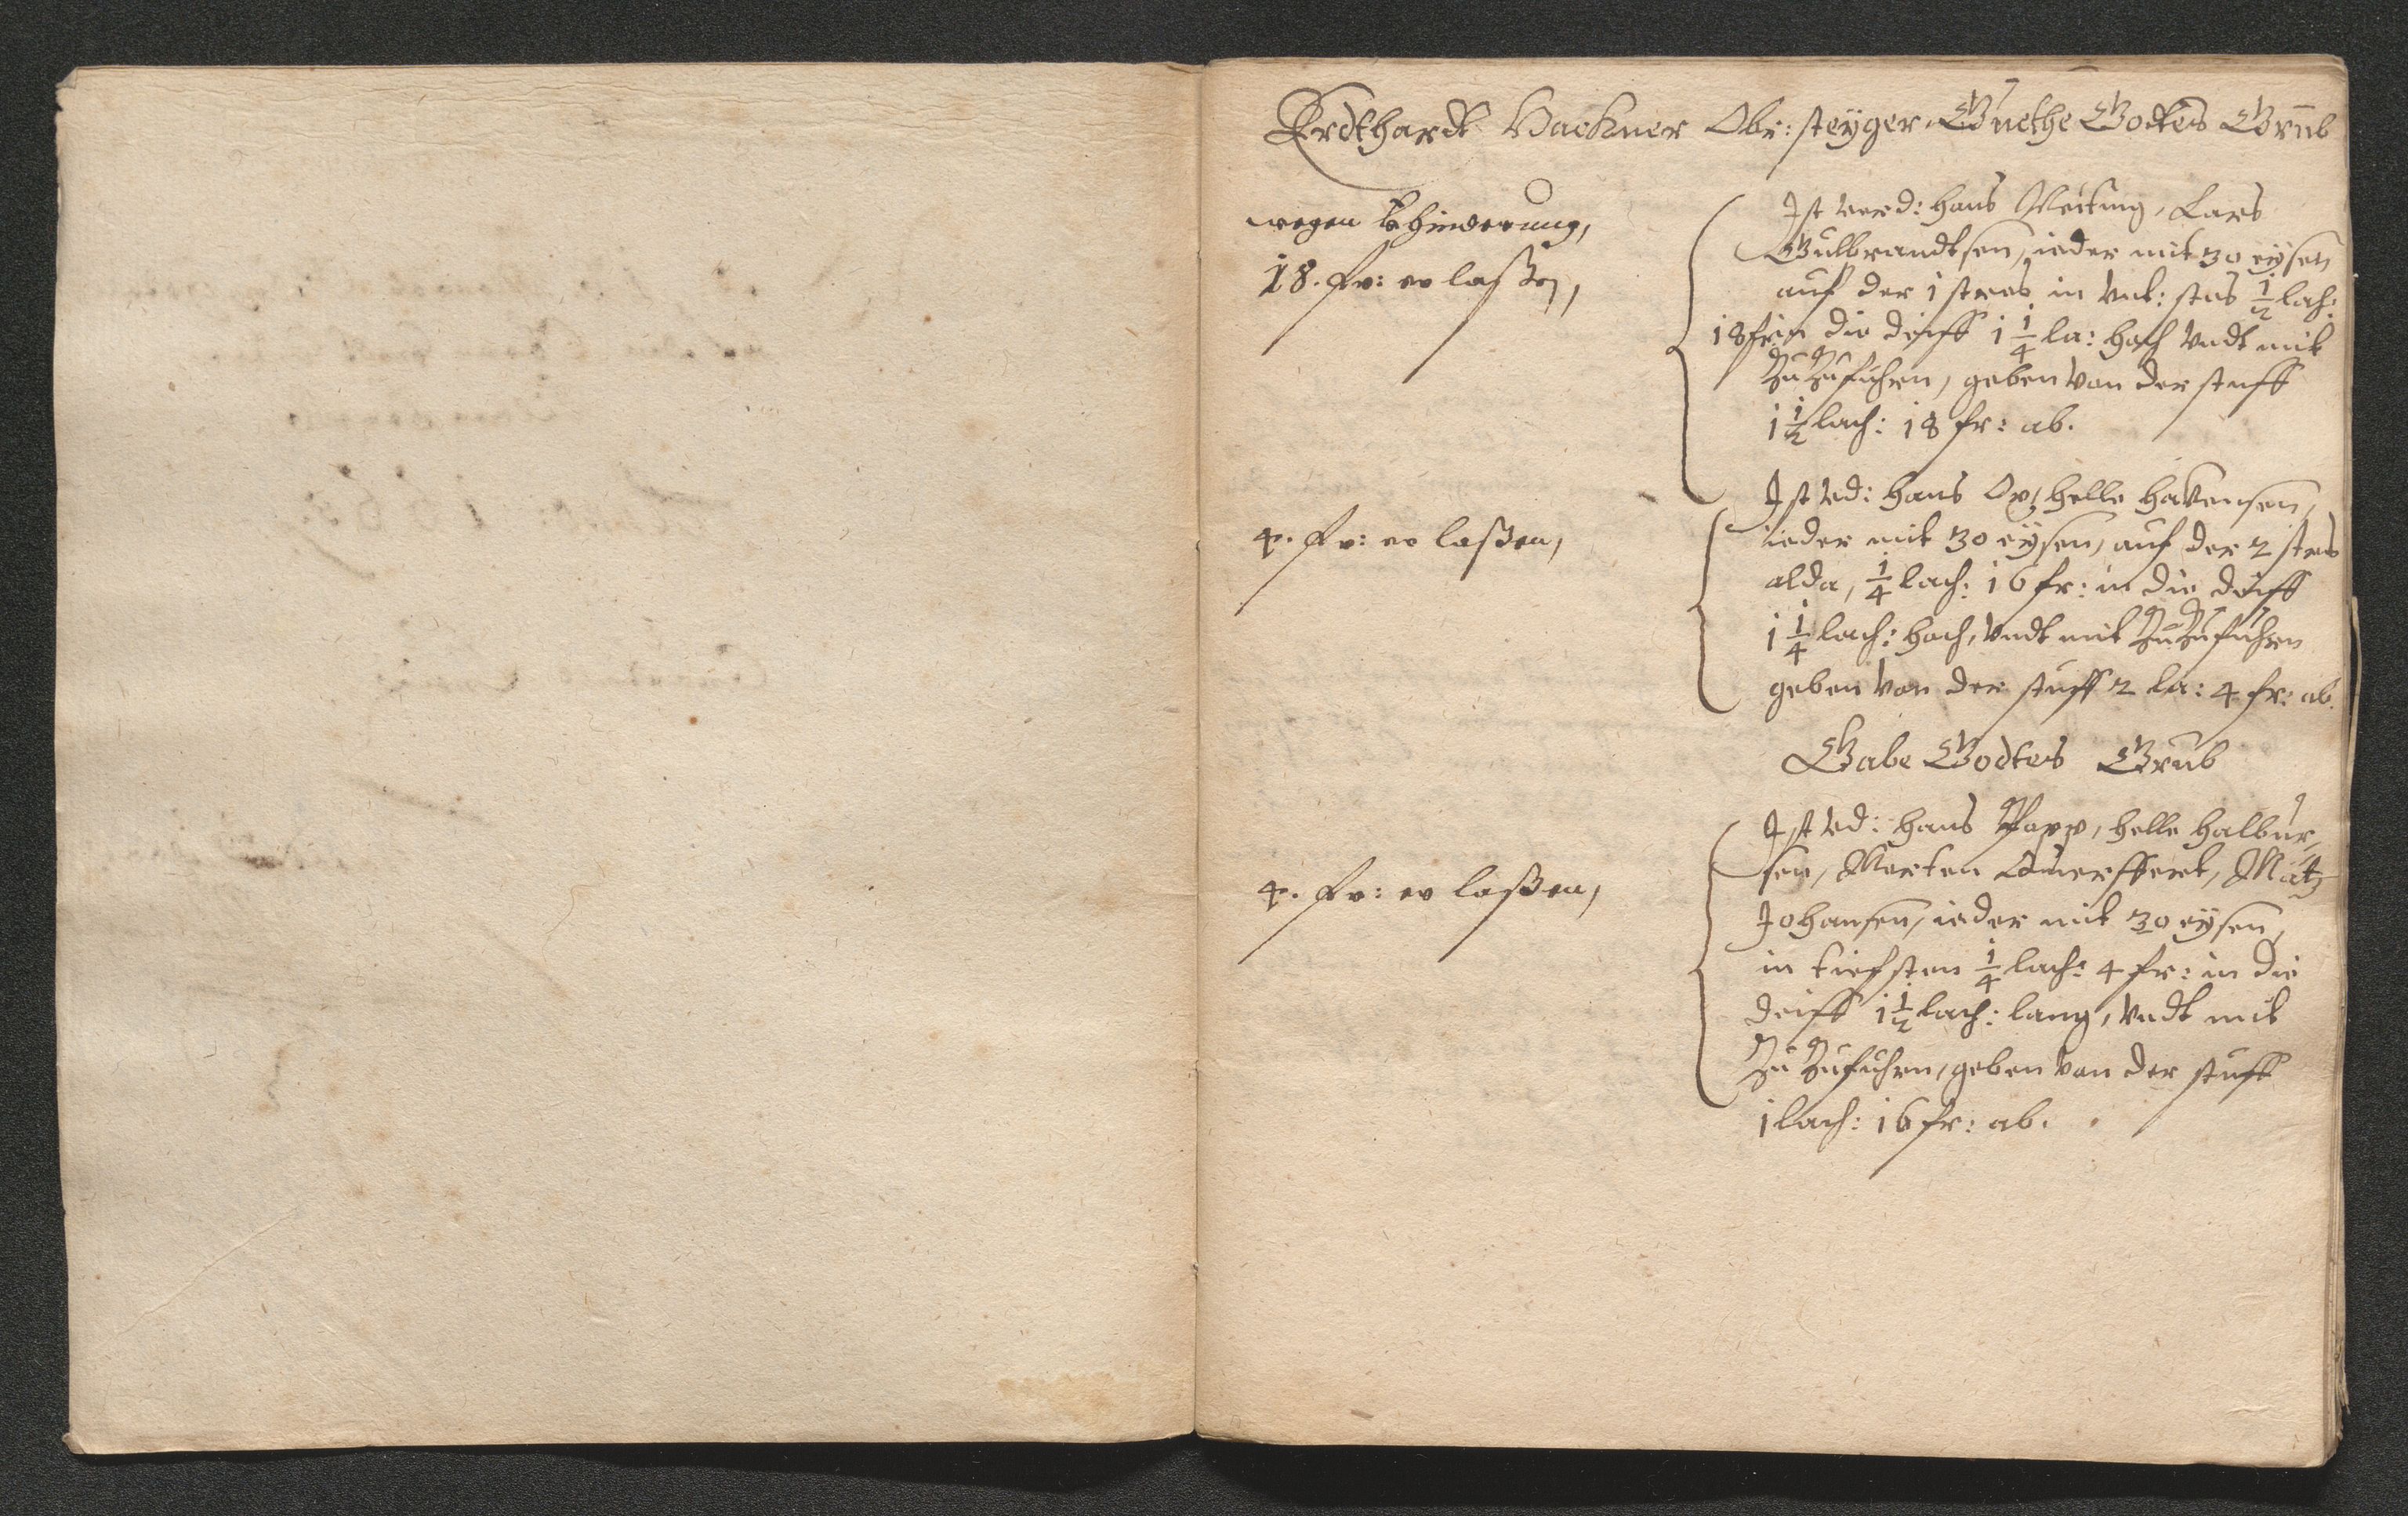 Erdthardt Backner Obr: steÿger, Guethe Godtes Grub
wegen behinderung,
18. fr: er laßen,
Ist verd: Hans Meising, Lars
Gulbrandtsen, ieder mit 30 eÿsen
auf der 1 stros in Unt: stos 1/2 lach:
18 fr: in die deiff 1 1/4 la: hoch Undt mit
Zu Zufuhren, geben von der stuff
1 1/2 lach: 18 fr: ab.
4. fr: er laßen,
Ist Ved: Hans Ox, Helle Havensen,
ieder mit 30 eÿsen, auf der 2 stros
alda, 1/4 lach: 16 fr: in die deiff
1 1/4 lach: hoch, Undt mit Zu Zufuhren
geben von der stuff 2 la: 4 fr: ab.
Gabe Godtes Grub
4. fr: er laßen,
Ist Ved: Hans Popp, Helle Halbur,
sen, Merten Querffert, Matz
Johansen, ieder mit 30 eÿsen,
in tiefsten 1/4 lach: 4 fr: in die
deiff 1 1/2 lach: lang, Undt mit
Zu Zufuhren, geben von der stuff
1 lach: 16 fr: ab.